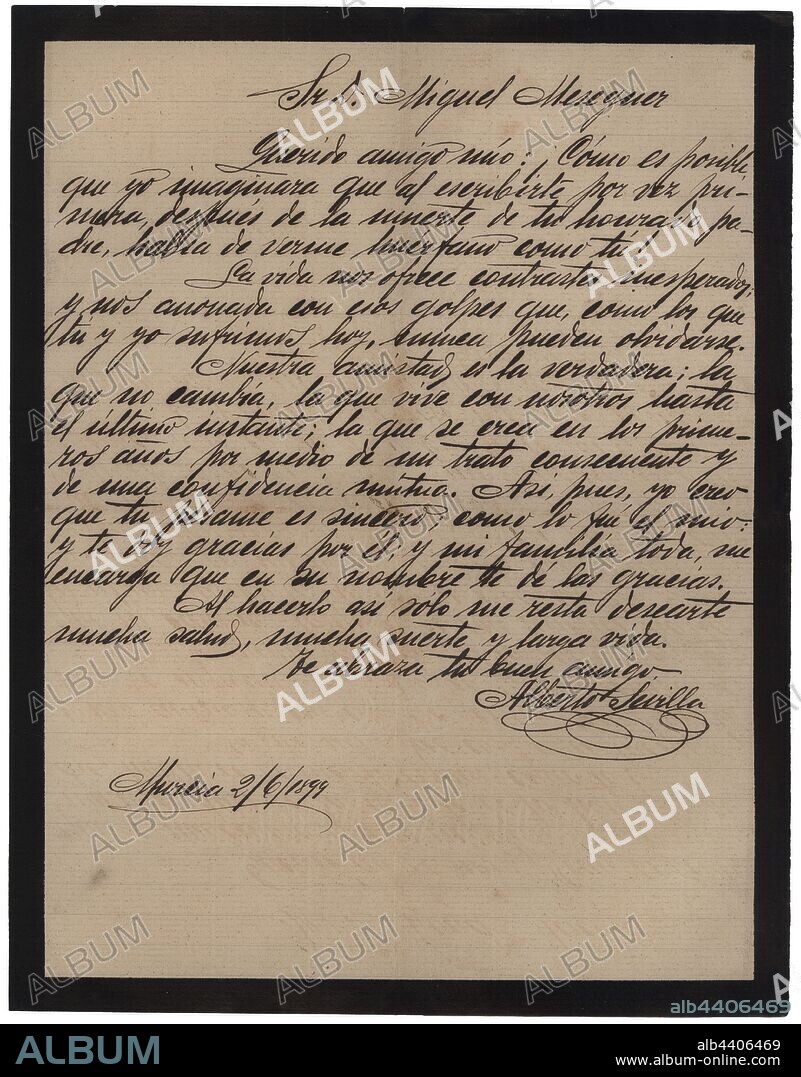 Sr. D. Miguel Meseguer
Querido amigo mío: ¿Cómo es posible
que yo imaginara que al escribirte por vez pri-
mera, después de la muerte de tu honrado pa-
dre, había de verme huérfano como tú?
La vida nos ofrece contrastes inesperados;
y nos anonada con esos golpes que, como los que
tú y yo sufrimos hoy, nunca pueden olvidarse.
Nuestra amistad es la verdadera: la
que no cambia, la que vive con nosotros hasta
el último instante; la que se crea en los prime-
ros años por medio de un trato consecuente y
de una confidencia mútua. Así, pues, yo creo
que tu pésame es sincero como lo fué el mio:
y te doy gracias por él; y mi familia toda, me
encarga que en su nombre te dé las gracias.
Al hacerlo así solo me resta desearte
mucha salud, mucha suerte y larga vida.
Te abraza tu buen amigo
Alberto Sevilla
Murcia 2/6/1899
alb4406469
ALBUM
alb4406469
www.album-online.com